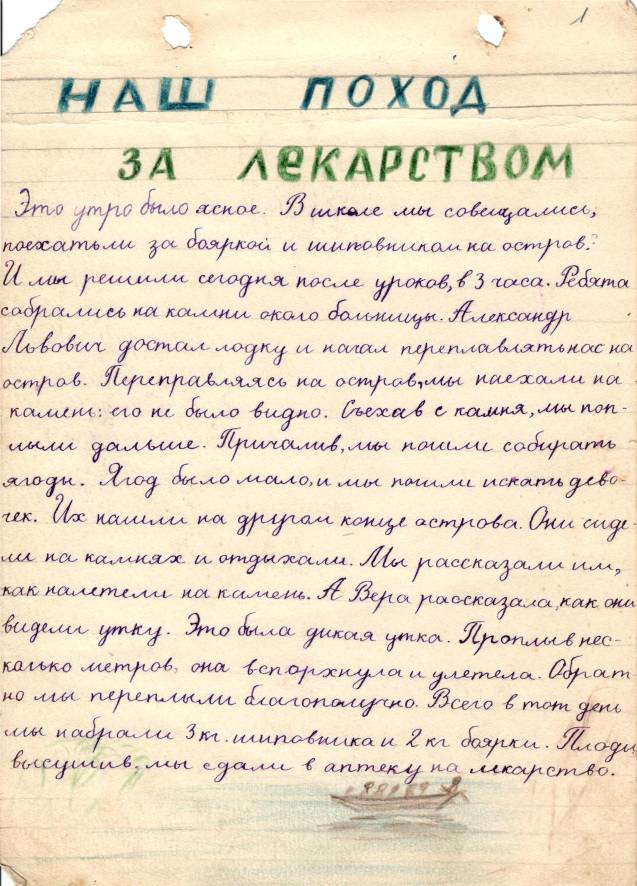 1
НАШ ПОХОД
ЗА ЛЕКАРСТВОМ
Это утро было ясное. В школе мы совещались,
поехать ли за бояркой и шиповником на остров?
И мы решили сегодня после уроков, в 3 часа. Ребята
собрались на камни около больницы. Александр
Львович достал лодку и начал переплавлять нас на
остров. Переправляясь на остров, мы наехали на
камень: его не было видно. Съехав с камня, мы поп-
лыли дальше. Причалив, мы пошли собирать
ягоды. Ягод было мало, и мы пошли искать дево-
чек. Их нашли на другом конце острова. Они сиде-
ли на камнях и отдыхали. Мы рассказали им,
как налетели на камень. А Вера рассказала, как они
видели утку. Это была дикая утка. Проплыв нес-
колько метров, она вспорхнула и улетела. Обрат-
но мы переплыли благополучно. Всего в тот день
мы набрали 3 кг. шиповника и 2 кг боярки. Плоды,
высушив, мы сдали в аптеку на лекарство.